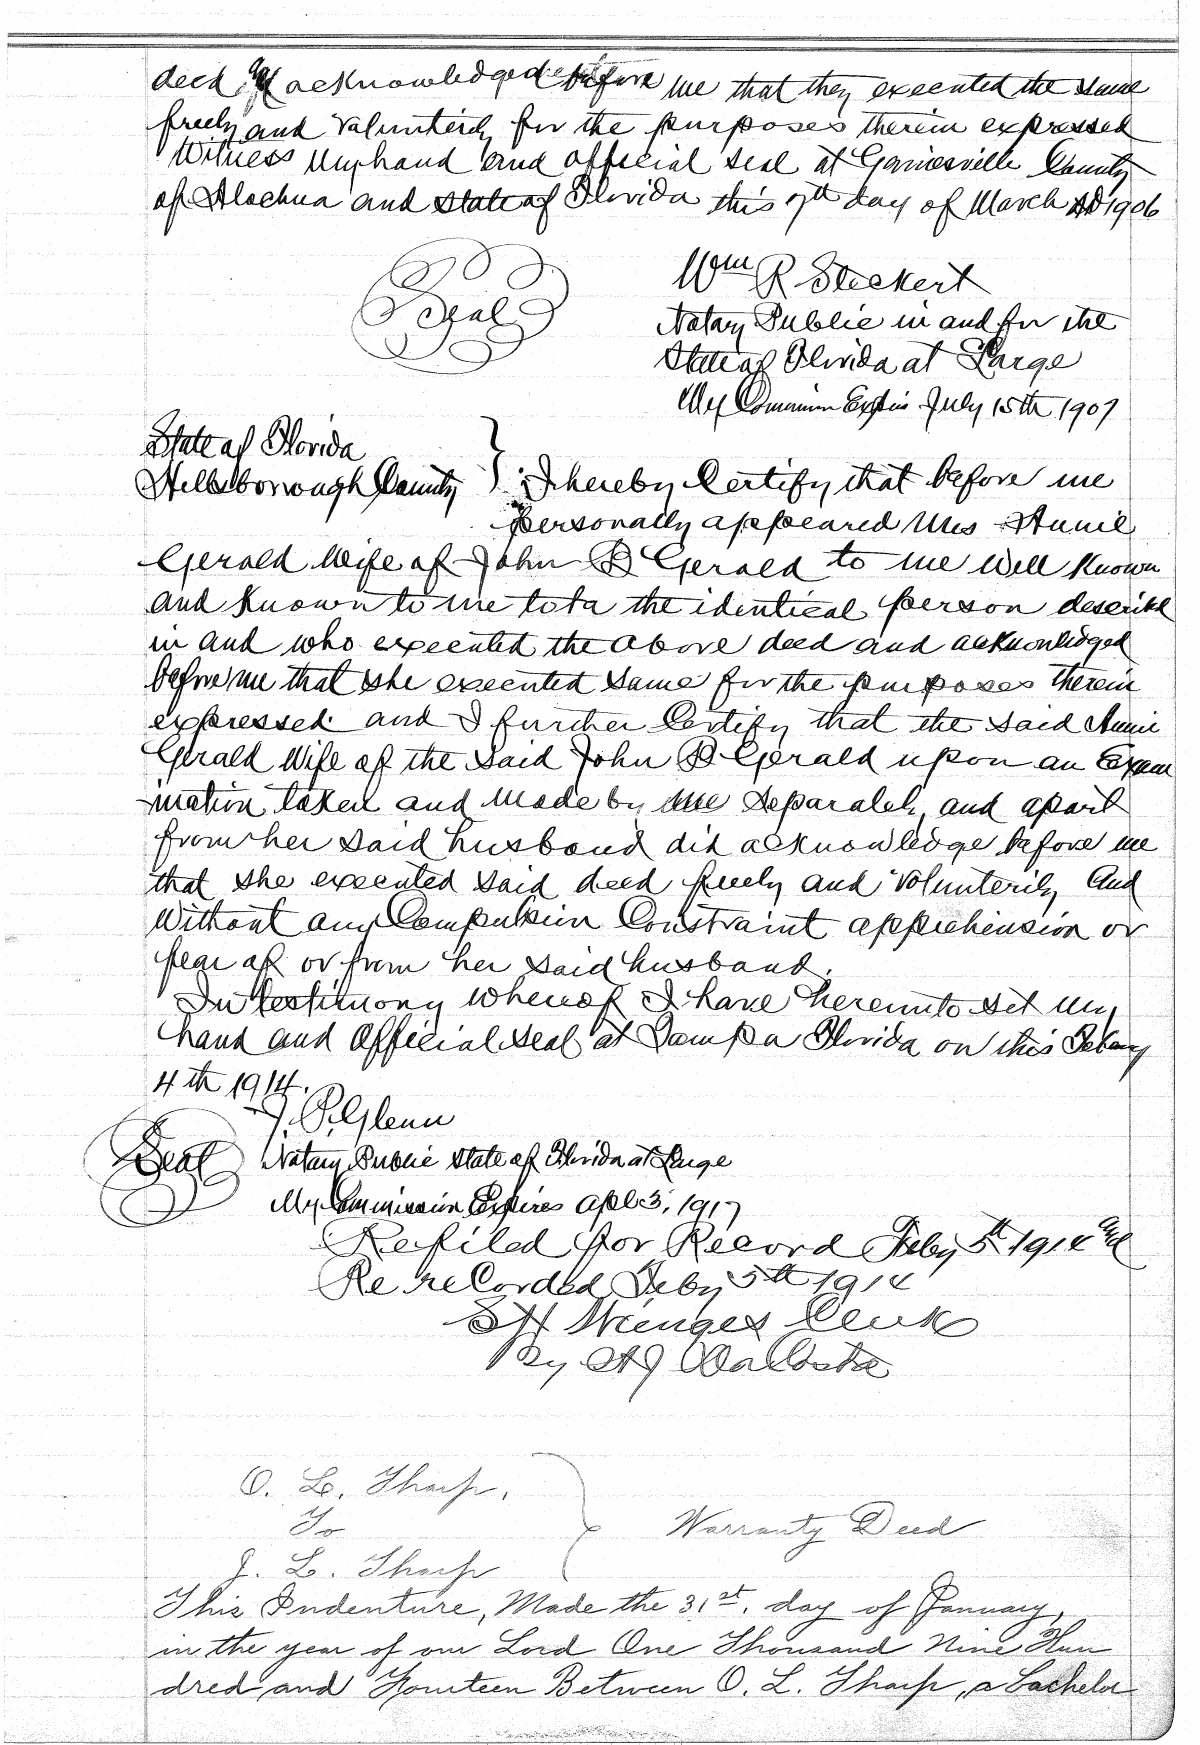 deed acknowledged before me that they executed the same
freely and Volunterily for the purposes therein expressed
Witness my hand and official seal at Gainesville County
of Alachua and State of Florida this 7th day of March AD 1906
Wm R Steckert
Seal
Notary Public in and for the
State of Florida at Large
My Commission Expires July 15th 1907
State of Florida
Hillsborough County } I hereby Certify that before me
personally appeared Mrs Annie
Gerald Wife of John B Gerald to me well known
and known to me to be the identical person described
in and who executed the above deed and acknowledged
before me that she executed same for the purposes therein
expressed and I further Certify that the said Annie
Gerald Wife of the said John B Gerald upon an Exam
ination taken and made by me separately and apart
from her said husband did acknowledge before me
that she executed said deed freely and Volunterily and
Without any Compulsion Constraint apprehension or
fear of or from her said husband.
In testimony whereof I have hereunto set my
hand and Official seal at Tampa Florida on this Febuary
4th 1914.
J. P. Glenn
Seal Notary Public State of Florida at Large
My Commission Expires Apl 3, 1917
Refiled for Record Feby 5th 1914
Re recorded Feby 5th 1914
S H Wienges Clerk
By A J DaCosta
O. L. Tharp,
To } Warranty Deed
J. L. Tharp
This Indenture, Made the 31st. day of January,
in the year of our Lord One Thousand Nine Hun
dred and Fourteen Between O. L. Tharp, a bachelor